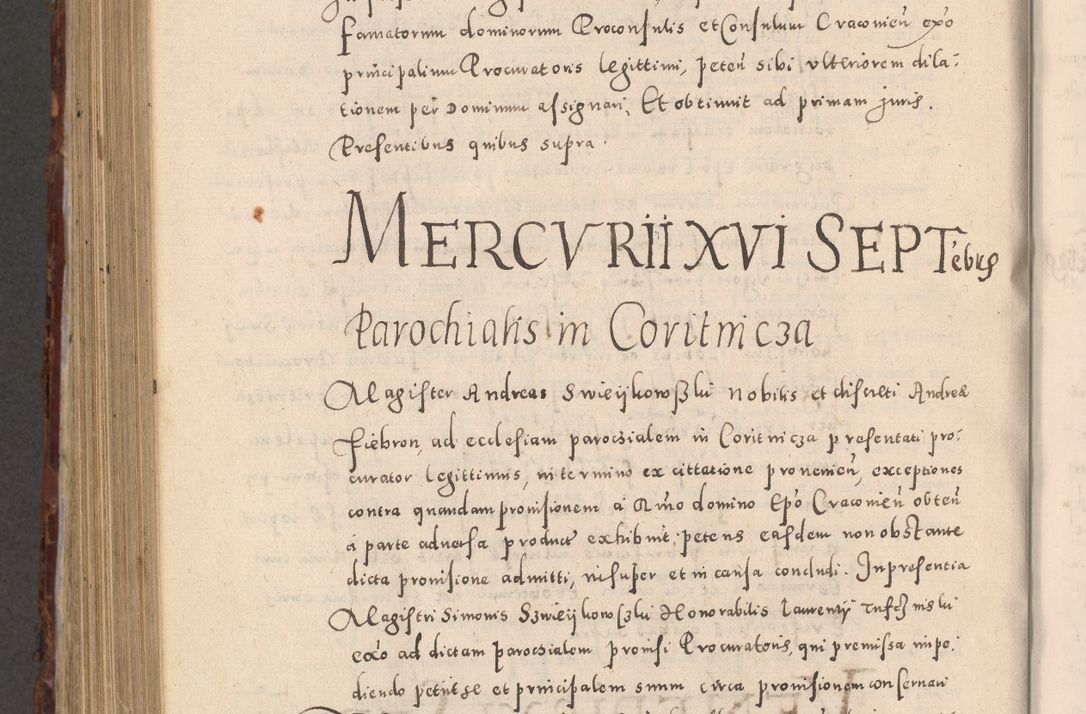 famatorum dominorum Proconsulis et Consulum Cracovieñ ex̃o
principalium Procuratoris legittimi, peteñ sibi ulteriorem dila-
tionem per Dominum assignari, Et obtinuit ad primam juris.
Presentibus quibus supra.
MERCVRII XVI SEPTẽbris
Parochialis in Coritnicza
Magister Andreas Swieijkowski nobilis et discreti Andreæ
Fiebron, ad ecclesiam parocsialem in Coritnicza presentati pro-
curator legittimus, in termino ex cittatione provenieñ, exceptiones
contra quandam provisionem á R̃mo domino Ep̃o Cracovieñ obteñ
á parte adversa product exhibuit, petens easdem non obstante
dicta provisione admitti, insuper et in causa concludi. In presentia
Magistri Simonis Szwieijkowszki Honorabilis Laurentij
ex̃o ad dictam parocsialem provisi Procuratoris, qui premissa impe-
diendo petiit se et principalem suum circa provisionem conservari